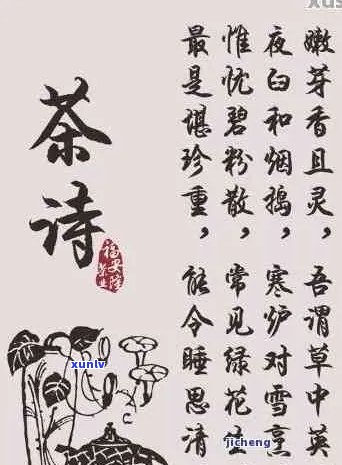 嫩芽香且灵，吾谓草中英
夜臼和烟捣，寒炉对雪烹
惟忧碧粉散，常见绿花生
最是堪珍重，能令睡思清
茶诗
xunlv
jicheng